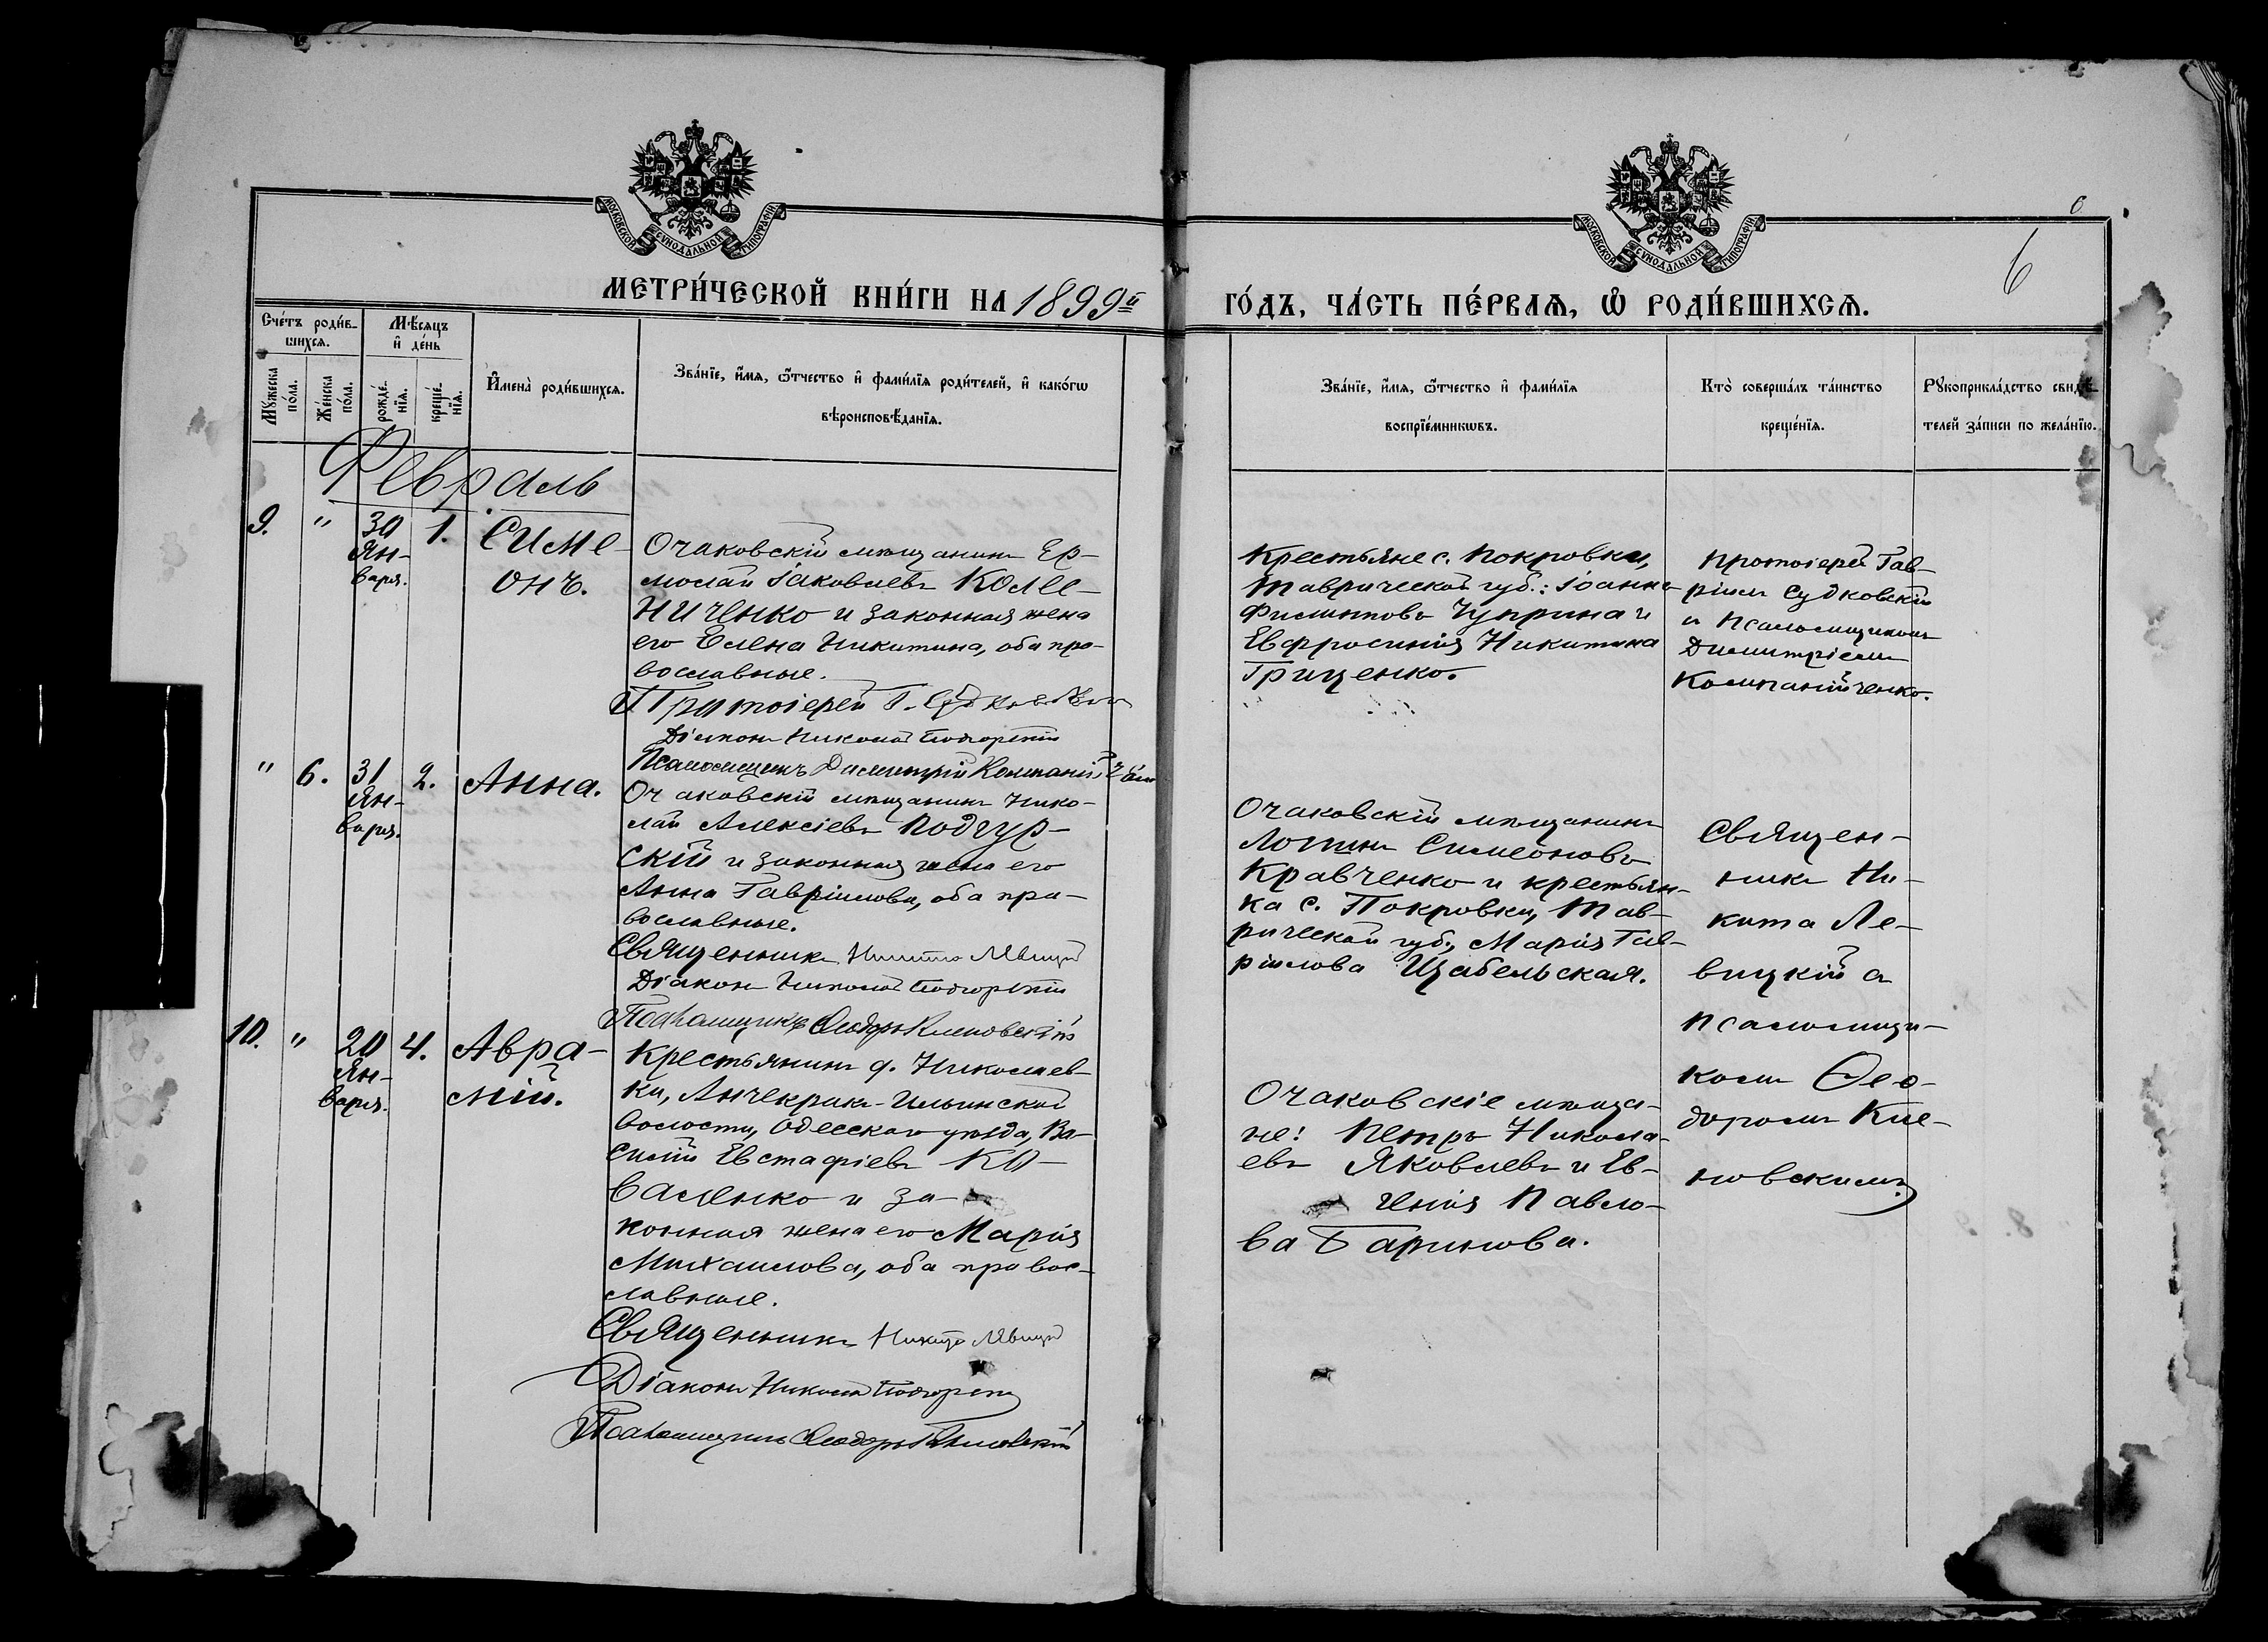 МОСКОВСКОЙ СѴНОДАЛЬНОЙ ТИПОГРАФІИ
МОСКОВСКОЙ СѴНОДАЛЬНОЙ ТИПОГРАФІИ
6
6
МЕТРИ́ЧЕСКОЙ КНИ́ГИ НА 1899й
ГО́ДЪ, ЧА́СТЬ ПЕ́РВАѦ, Ѽ РОДИ́ВШИХСѦ.
Сче́тъ роди́в-
шихсѧ.
Мѣ́сѧцъ
и҆ де́нь
Мꙋ́жеска
по́ла.
Же́нска
по́ла.
рожде́-
нїѧ.
креще́-
нїѧ.
И҆мена̀ роди́вшихсѧ.
Зва́нїе, и҆́мѧ, ѻ҆́тчество и҆ фами́лїѧ роди́телей, и҆ како́гѡ
вѣроисповѣ́данїѧ.
Зва́нїе, и҆́мѧ, ѻ҆́тчество и҆ фами́лїѧ
воспрїе́мникѡвъ.
Кто̀ соверша́лъ та́инство
креще́нїѧ.
Рꙋкоприкла́дство свидѣ́-
телей за́писи по жела́нїю.
Февраль
9.
"
30
Ян-
варя.
1.
Симе-
онъ.
Очаковскій мѣщанинъ Ер-
молай Іаковлевъ Коле-
ниченко и законная жена
его Елена Никитина, оба пра-
вославные.
Протоіерей Г. Судковскій
Діаконъ Николай Подгорскій
Псаломщикъ Димитрій Компанійч
Крестьяне с. Покровки,
Таврической губ.: Іоаннъ
Филиповъ Чуприна и
Евфросинія Никитина
Гриценко.
Протоіерей Гав-
ріилъ Судковскій
и псаломщикомъ
Димитріемъ
Компанійченко.
"
6.
31
Ян-
варя.
2.
Анна.
Очаковскій мѣщанинъ Нико-
лай Алексіевъ Подгур-
скій и законная жена его
Анна Гавріилова, оба пра-
вославные.
Священникъ Никита Левицкій
Діаконъ Николай Подгорскій
Псаломщикъ Ѳеодоръ Клеповскій
Очаковскій мѣщанинъ
Логинъ Симеоновъ
Кравченко и крестьян-
ка с. Покровки, Тав-
рической губ., Марія Гав-
ріилова Щабельская.
Священ-
никъ Ни-
кита Ле-
вицкій съ
псаломщи-
комъ Ѳео-
доромъ Кле-
повскимъ.
10.
"
20
Ян-
варя.
4.
Авра-
мій.
Крестьянинъ д. Николаев-
ки, Анчекрак-Ильинской
волости, Одесскаго уѣзда, Ва-
силій Евстафіевъ Ко-
валенко и за-
конная жена его Марія
Михаилова, оба правос-
лавные.
Священникъ Никита Левицкій
Діаконъ Николай Подгорскій
Псаломщикъ Ѳеодоръ Клеповскій
Очаковскіе мѣща-
не: Петръ Никола-
евъ Яковлевъ и Ев-
генія Павло-
ва Баринова.